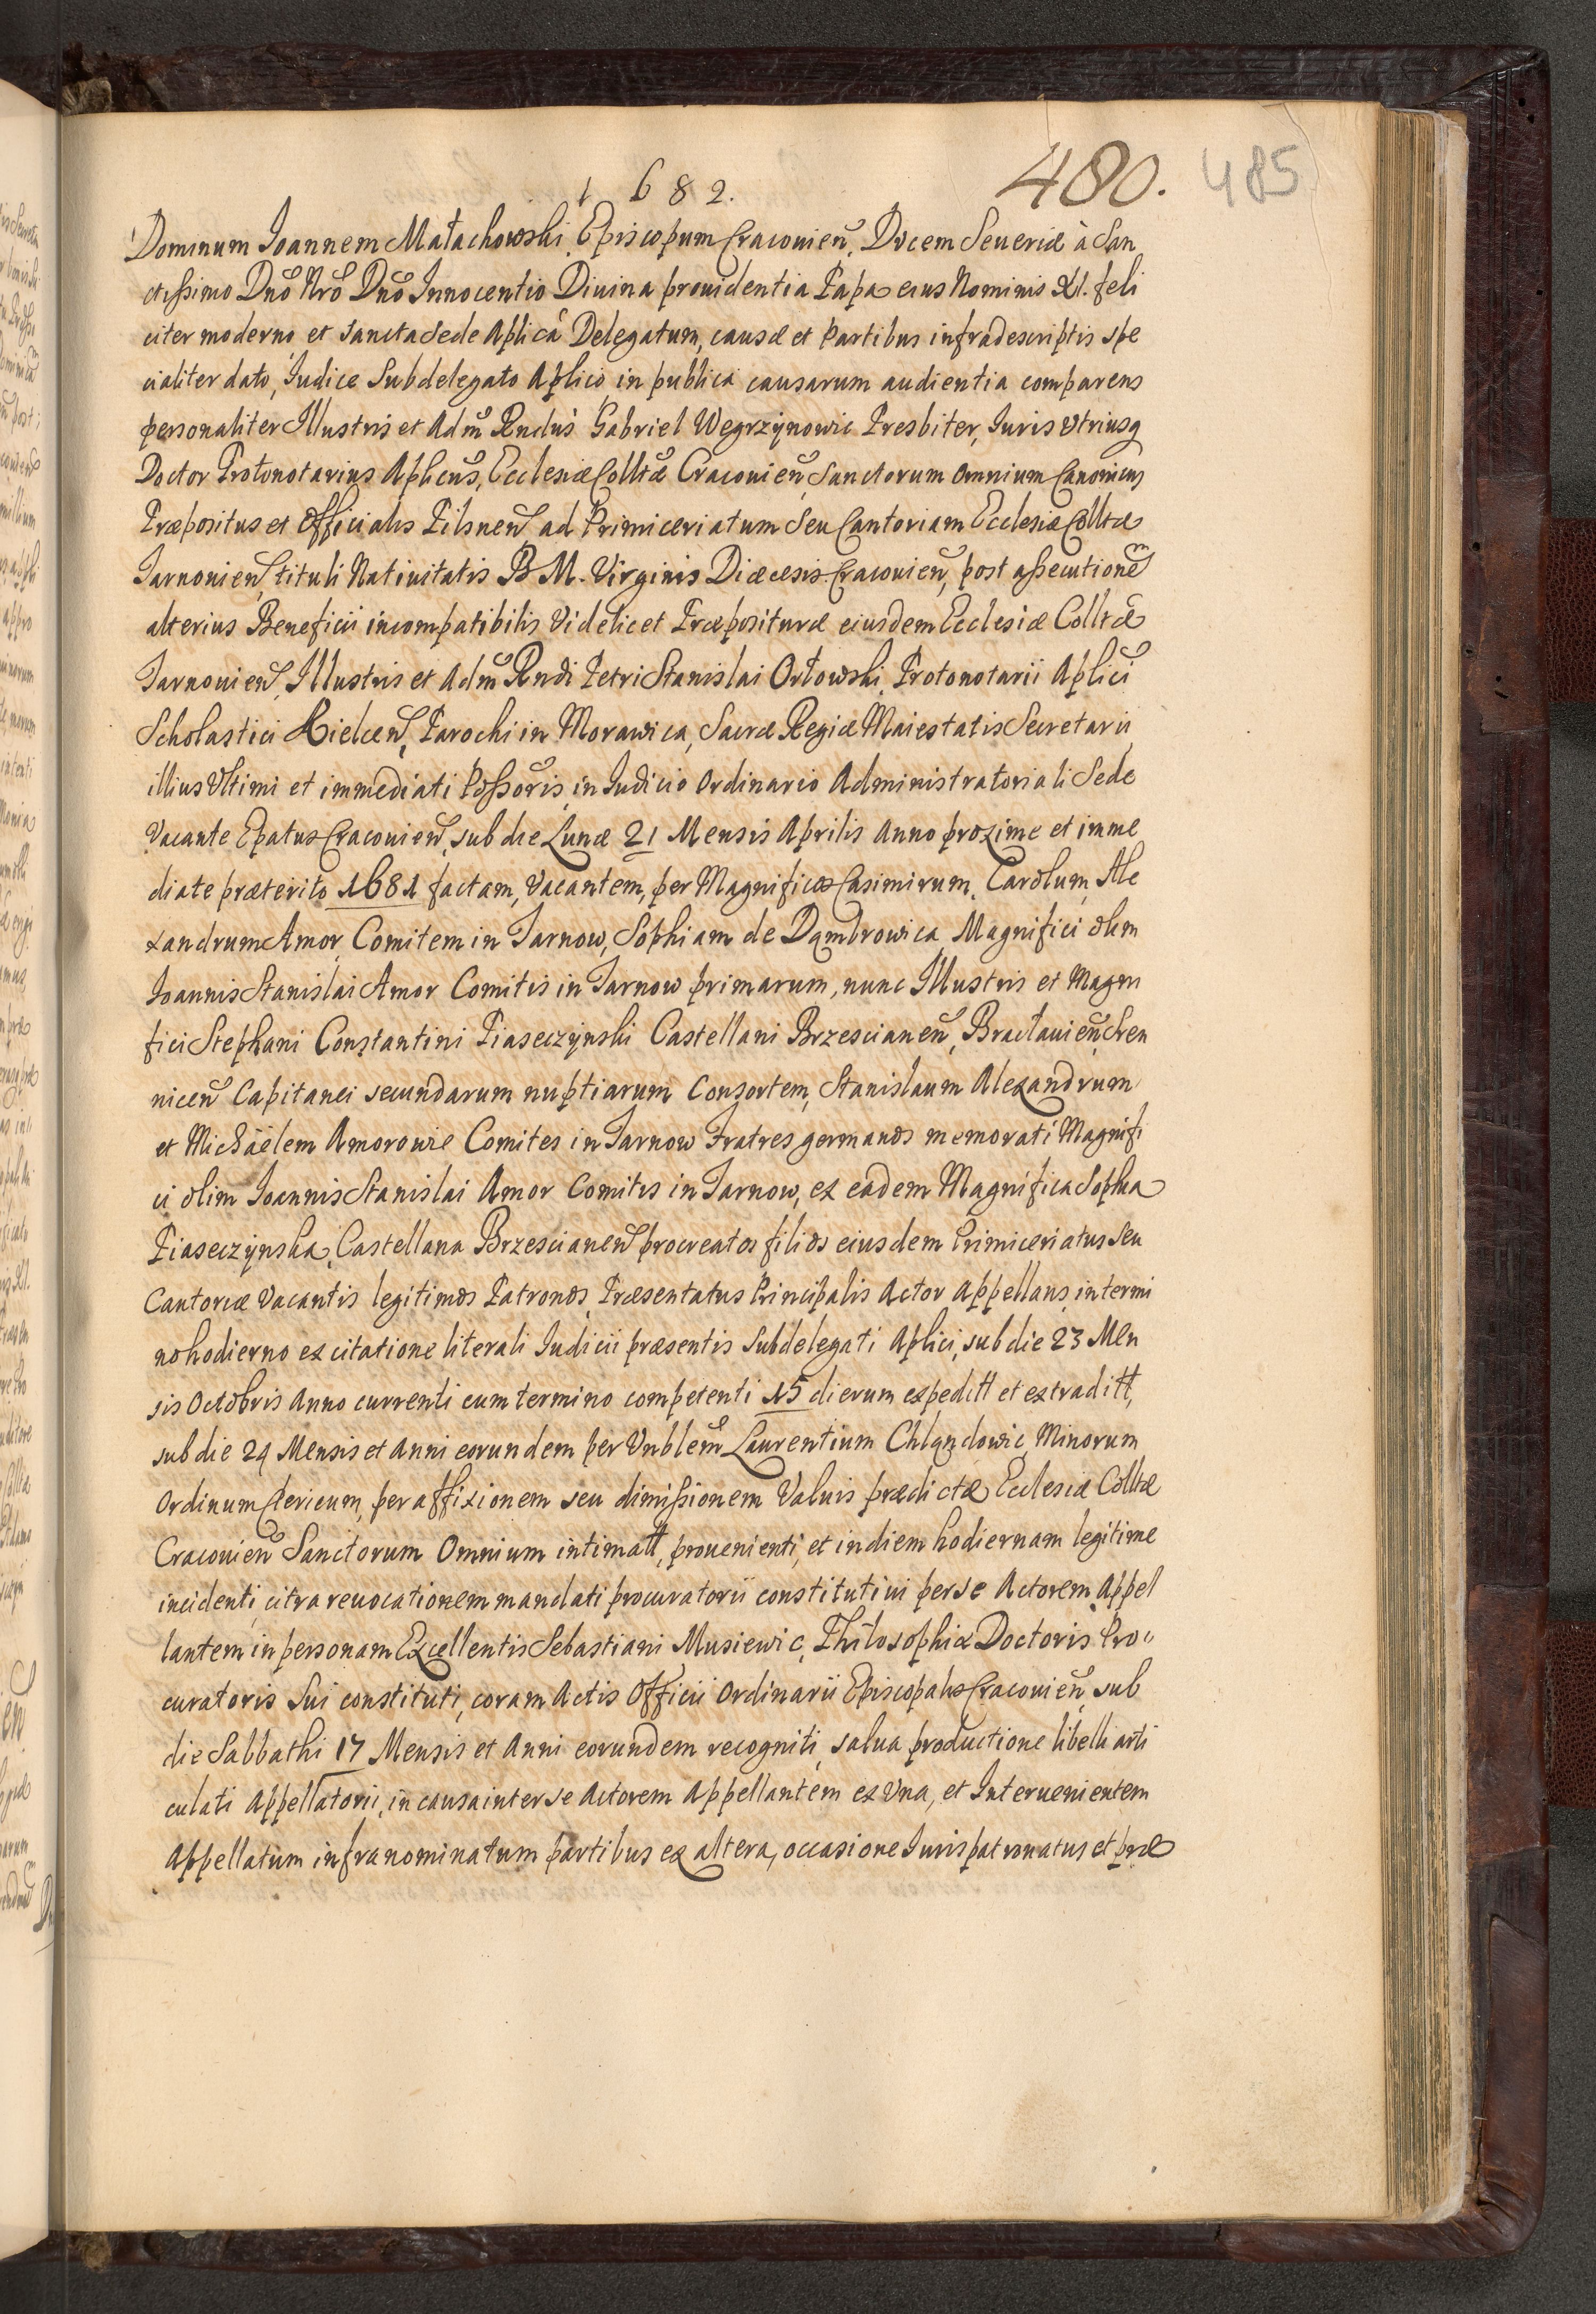 1682.
480.
485
Dominum Joannem Małachowski Episcopum Cracouien, Ducem Seueriæ à San
ctissimo Dno Nro Dno Innocentio Diuina prouidentia Papa eius Nominis XI. feli
citer moderno et sancta Sede Aplica Delegatum, causæ et Partibus infradescriptis spe
cialiter dato, Iudice Subdelegato Aplico in publica causarum audientia comparens
personaliter Illustris et Adm Rndus Gabriel Wegrzynowic Presbiter, Iuris Vtriusq
Doctor Protonotarius Aplicus, Ecclesiæ Colltæ Cracouien Sanctorum Omnium Canonicus
Præpositus et Officialis Pilsnen ad Primiceriatum Seu Cantoriam Ecclesiæ Colltæ
Tarnouien, tituli Natiuitatis B M. Virginis Diæcesis Cracouien, post assecutionem
alterius Beneficii incompatibilis Videlicet Præpositure eiusdem Ecclesiæ Colltæ
Tarnouien, Illustris et Adm Rndi Petri Stanislai Orłowski Protonotarii Aplici
Scholastici Kielcen, Parochi in Morawica, Sacræ Regiæ Maiestatis Secretarii
illius Vltimi et immediati Possoris, in Iudicio Ordinario Administratoriali Sede
Vacante Epatus Cracouien, sub die Lunæ 21 Mensis Aprilis Anno proxime et imme
diate præterito 1681 factam, Vacantem, per Magnificos Casimirum, Carolum, Ale
xandrum Amor Comitem in Tarnow, Sophiam de Dąmbrowica Magnifici olim
Joannis Stanislai Amor Comitis in Tarnow primarum, nunc Illustris et Magni
fici Stephani Constantini Piaseczynski Castellani Brzescianen, Bracłauien, Chren
nicen Capitanei secundarum nuptiarum Consortem, Stanislaum Alexandrum
et Michäelem Amorowie Comites in Tarnow Fratres germanos memorati Magnifi
ci olim Joannis Stanislai Amor Comitis in Tarnow, ex eadem Magnifica Sophia
Piaseczynska, Castellana Brzescianen procreatos filios eiusdem Primiceriatus Seu
Cantoriæ Vacantis legitimos Patronos Præsentatus Principalis Actor Appellans, in termi
no hodierno ex citatione literali Iudicii præsentis Subdelegati Aplici, sub die 23 Men
sis Octobris Anno currenti cum termino competenti 15 dierum expeditt et extraditt,
sub die 24 Mensis et Anni eorundem per Vnblem Laurentium Chlądowic Minorum
Ordinum Clericum, per affixionem seu dimissionem Valuis prædictæ Ecclesiæ Colltæ
Cracouien Sanctorum Omnium intimatt, prouenienti, et in diem hodiernam legitime
incidenti, citra reuocationem mandati procuratorii constitutiui per se Actorem Appel
lantem in personam Excellentis Sebastiani Musiewic, Philosophiæ Doctoris Pro"
curatoris Sui constituti, coram Actis Officii Ordinarii Episcopalis Cracouien sub
die Sabbathi 17 Mensis et Anni eorundem recogniti, salua productione libelli arti
culati Appellatorii, in causa inter se Actorem Appellantem ex Vna, et Interuenientem
Appellatum infranominatum partibus ex altera, occasione Iurispatronatus et præ